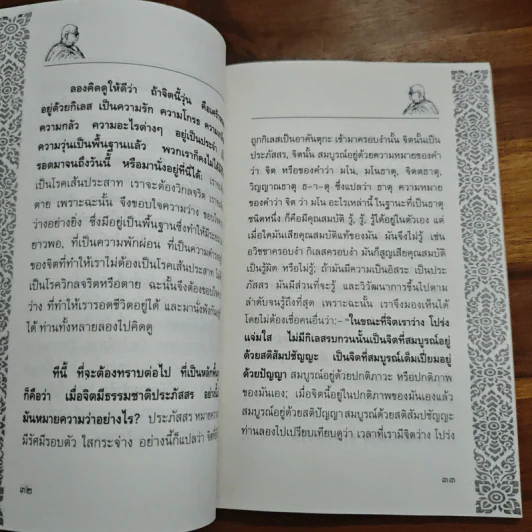 ลองคิดดูให้ดีว่า ถ้าจิตนี้วุ่น คือเศร้า
อยู่ด้วยกิเลส เป็นความรัก ความโกรธ ความ
ความกลัว ความอะไรต่างๆ อยู่เป็นประจำ
ความวุ่นเป็นพื้นฐานแล้ว พวกเราก็คงไม่ได้
รอดมาจนถึงวันนี้ หรือมานั่งอยู่ที่นี่ได้
เป็นโรคเส้นประสาท เราจะต้องวิกลจริต
ตาย เพราะฉะนั้น จงขอบใจความว่าง
ว่างอย่างยิ่ง ซึ่งมีอยู่เป็นพื้นฐานซึ่งทำให้มี
ยาวพอ, ที่เป็นความพักผ่อน ที่เป็นความ
ของจิตที่ทำให้เราไม่ต้องเป็นโรคเส้นประสาท ไม่
เป็นโรควิกลจริตหรือตาย ฉะนั้นจึงต้องขอบใจ
ว่าง ที่ทำให้เรารอดชีวิตอยู่ได้ และมานั่งฟังกัน
ได้ ท่านทั้งหลายลองไปคิดดู
ทีนี้ ที่จะต้องทราบต่อไป ที่เป็นหลัก
ก็คือว่า เมื่อจิตมีธรรมชาติประภัสสร
มันหมายความว่าอย่างไร? ประภัสสร หมาย
มีรัศมีรอบตัว ใสกระจ่าง อย่างนี้ก็แปลว่า
๓๒
ถูกกิเลสเป็นอาคันตุกะ เข้ามาครอบงำนั้น จิตนั้นเป็น
ประภัสสร, จิตนั้น สมบูรณ์อยู่ด้วยความหมายของคำ
ว่า จิต หรือของคำว่า มโน, มนธาตุ, จิตตธาตุ,
วิญญาณธาตุ ธ–า–ตุ. ซึ่งแปลว่า ธาตุ ความหมาย
ของคำว่า จิต ว่า มโน อะไรเหล่านี้ ในฐานะที่เป็นธาตุ
ชนิดหนึ่ง ก็คือมีคุณสมบัติ รู้, รู้, รู้ได้อยู่ในตัวเอง แต่
เมื่อใดมันเสียคุณสมบัติแท้ของมัน มันจึงไม่รู้ เช่น
อวิชชาครอบงำ กิเลสครอบงำ มันก็สูญเสียคุณสมบัติ
เป็นรู้ผิด หรือไม่รู้; ถ้ามันมีความเป็นอิสระ เป็นประ
ภัสสร มันมีส่วนที่จะรู้ และวิวัฒนาการขึ้นไปตาม
ลำดับจนรู้ถึงที่สุด เพราะฉะนั้น เราจึงมองเห็นได้
โดยไม่ต้องเชื่อคนอื่นว่า:– "ในขณะที่จิตเราว่าง โปร่ง
แจ่มใส ไม่มีกิเลสรบกวนนั้นเป็นจิตที่สมบูรณ์อยู่
ด้วยสติสัมปชัญญะ เป็นจิตที่สมบูรณ์เต็มเปี่ยมอยู่
ด้วยปัญญา สมบูรณ์อยู่ด้วยปกติภาวะ หรือปกติภาพ
ของมันเอง; เมื่อจิตนี้อยู่ในปกติภาพของมันเองแล้ว
สมบูรณ์อยู่ด้วยสติปัญญา สมบูรณ์ด้วยสติสัมปชัญญะ
ท่านลองไปเปรียบเทียบดูว่า เวลาที่เรามีจิตว่าง โปร่ง
๓๓